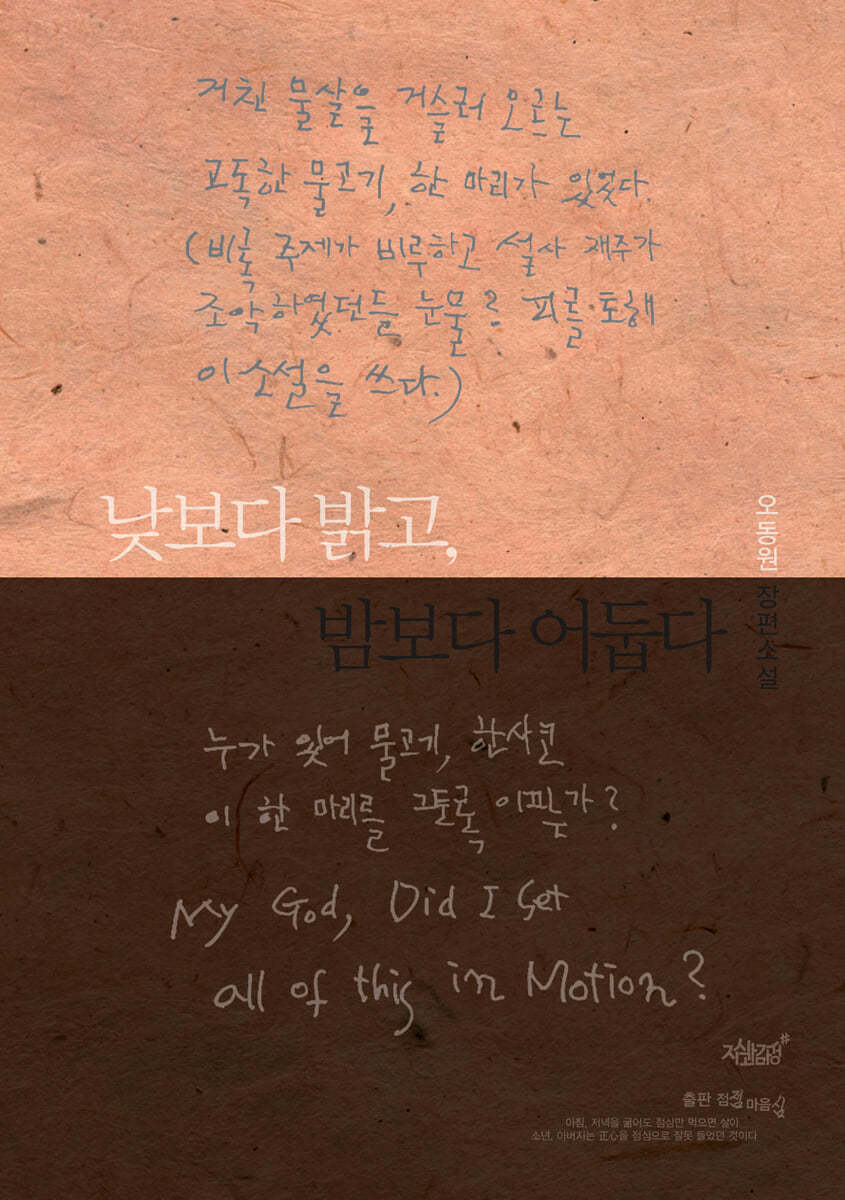 거친 물살을 거슬러 오르는
고독한 물고기, 한 마리가 있었다.
(비록 주제가 비루하고 설사 재주가
조악하였던들 눈물? 피를 토해
이 소설을 쓰다.)
낮보다 밝고,
밤보다 어둡다
오동원 장편소설
누가 있어 물고기, 한사코
이 한 마리를 그토록 이끄는가?
My God, Did I Set
all of this in Motion?
지식과감성#
출판 점정 마음심
아침, 저녁을 굶어도 점심만 먹으면 살아
소년, 아버지는 正心을 점심으로 잘못 들었던 것이다